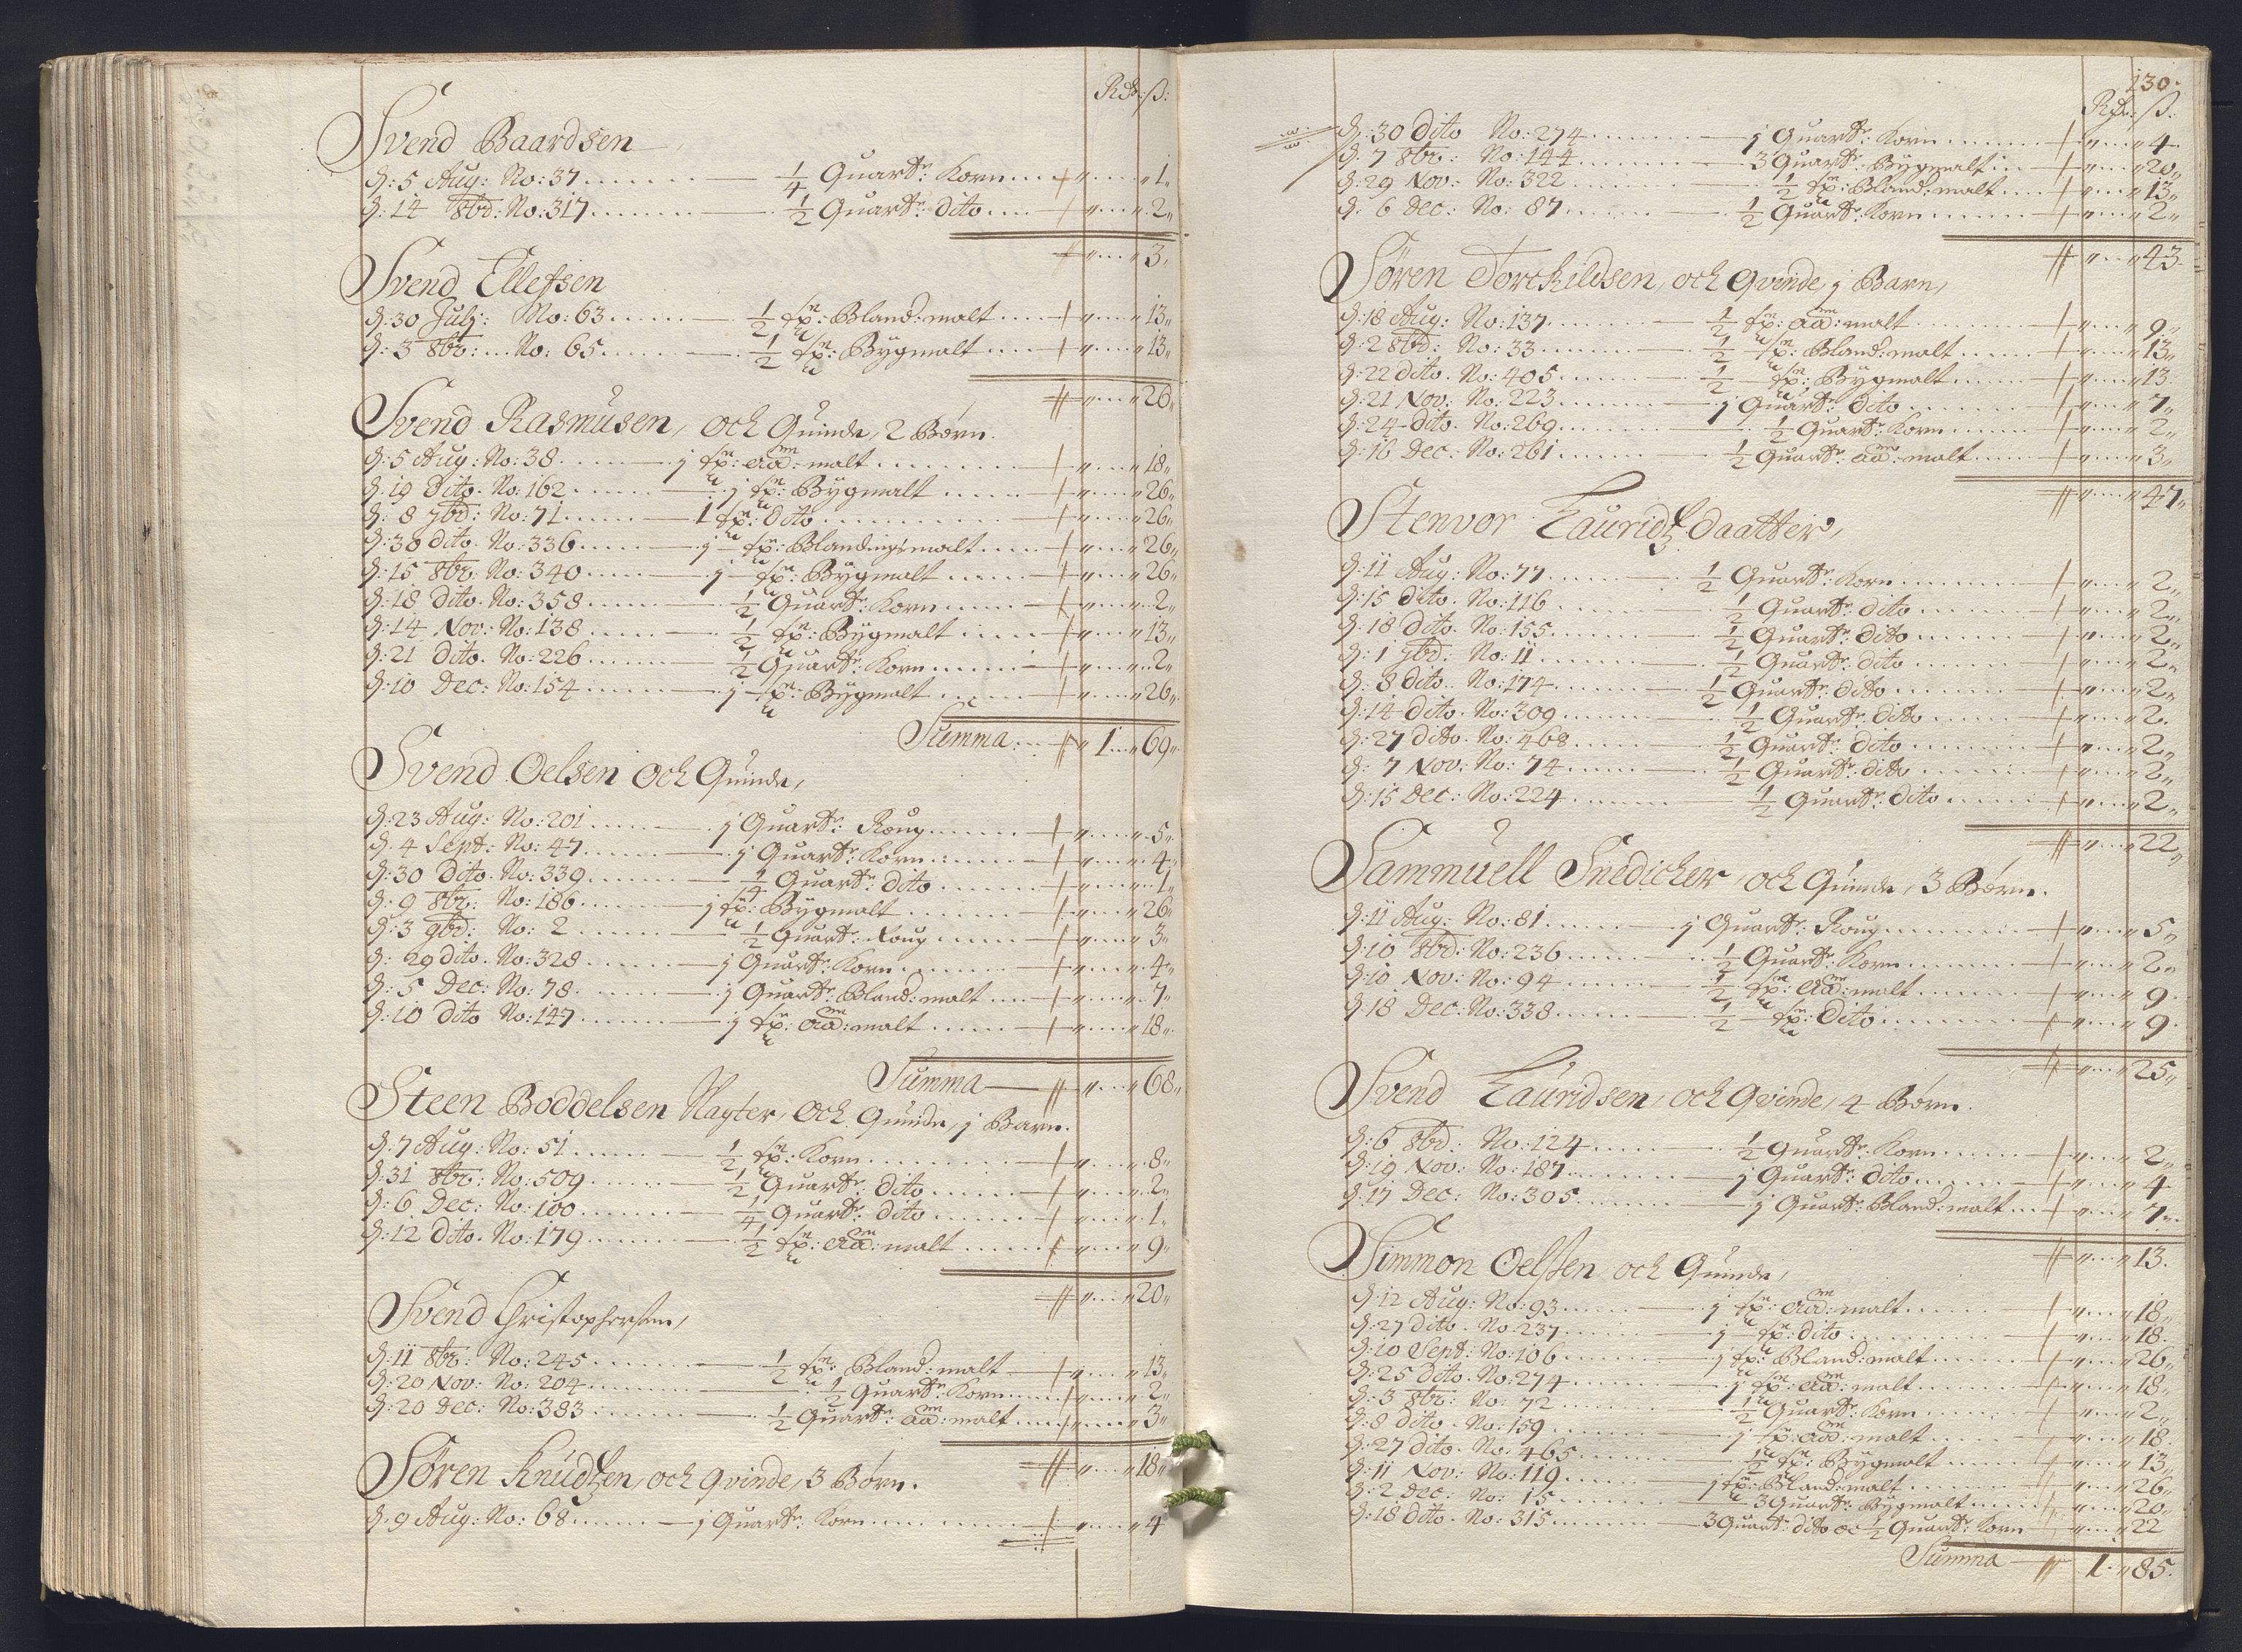 Rdr: ß:
Svend Baardsen
d: 5 Aug: No: 37 ¼ Quart: Korn 1
d: 14 8bd: No: 317 ½ Quart: dito 2
3
Svend Ellefsen
d: 30 Julj: No: 63 ½ tx: Bland: malt 13
d: 3 8br: No: 65 ½ tx: Bÿgmalt 13
26
Svend Rasmusen, och Quinde, 2 Børn.
d: 5 Aug: No: 38 j tx: aad: malt 18
d: 19 dito. No: 162 j tx: Bÿgmalt 26
d: 8 7bd: No: 71 1 tx: dito 26
d: 30 dito. No: 336 j tx: Blandings malt 26
d: 15 8br: No: 340 j tx: Bÿgmalt 26
d: 18 dito. No: 358 ½ Quart: Korn 2
d: 14 Nov: No: 138 ½ tx: Bÿgmalt 13
d: 21 dito. No: 226 ½ Quart: Korn 2
d: 10 Dec: No: 154 j tx: Bÿgmalt 26
Summa 1 69
Svend Oelsen och Quinde,
d: 23 Aug: No: 201 j Quart: Roug 5
d: 4 Sept: No: 47 j Quart: Korn 4
d: 30 dito. No: 339 ¼ Quart: dito 1
d: 9 8br: No: 186 j tx: Bÿgmalt 26
d: 3 9bd: No: 2 ½ Quart: Roug 3
d: 29 dito. No: 328 j Quart: Korn 4
d: 5 Dec: No: 78 j Quart: Bland: malt 7
d: 10 dito No: 147 j tx: aad: malt 18
Summa 68
Steen Boddelsen Nagter, och Quinde, j Barn.
d: 7 Aug: No: 51 ½ tx: Korn 8
d: 31 8br: No: 509 ½ Quart: dito 2
d: 6 Dec: No: 100 ¼ Quart: dito 1
d: 12 dito. No: 179 ½ tx: aad: malt 9
20
Svend Christophersen,
d: 11 8br: No: 245 ½ tx: Bland: malt 13
d: 20 Nov: No: 204 ½ Quart: Korn 2
d: 20 Dec: No: 383 ½ Quart: aad: malt 3
18
Søren Knudtzen, och qvinde, 3 Børn.
d: 9 Aug: No: 68 j Quart: Korn 4
130.
Rdr: ß:
d: 30 dito No: 274 j Quart: Korn 4
d: 7 8br: No: 144 3 Quart: Bÿgmalt 20
d: 29 Nov: No: 322 ½ tx: Bland: malt 13
d: 6 Dec: No: 87 ½ Quart: Korn 2
43
Søren Torckildsen, och qvinde, j Barn,
d: 18 Aug: No: 137 ½ tx: aad: malt 9
d: 2 8bd: No: 33 ½ tx: Bland: malt 13
d: 22 dito. No: 405 ½ tx: Bÿgmalt 13
d: 21 Nov: No: 223 j Quart: dito 7
d: 24 dito. No: 269 ½ Quart: Korn 2
d: 16 Dec: No: 261 ½ Quart: aad: malt 3
47
Stenvor Lauridtz daatter,
d: 11 Aug: No: 77 ½ Quart: Korn 2
d: 15 dito. No: 116 ½ Quart: dito 2
d: 18 dito. No: 155 ½ Quart: dito 2
d: 1 7bd: No: 11 ½ Quart: dito 2
d: 8 dito. No: 174 ½ Quart: dito 2
d: 14 dito. No: 309 ½ Quart: dito 2
d: 27 dito. No: 468 ½ Quart: dito 2
d: 7 Nov: No: 74 ½ Quart: dito 2
d: 15 Dec: No: 224 ½ Quart: dito 2
22
Sammuell Snedicker, och Quinde, 3 Børn.
d: 11 Aug: No: 81 j Quart: Roug 5
d: 10 8bd: No: 236 ½ Quart: Korn 2
d: 10 Nov: No: 94 ½ tx: aad: malt 9
d: 18 Dec: No: 338 ½ tx: dito 9
25
Svend Lauridsen, och qvinde, 4 Børn.
d: 6 8bd: No: 124 ½ Quart: Korn 2
d: 19 Nov: No: 187 j Quart: dito 4
d: 17 Dec: No: 305 j Quart: Bland: malt 7
13
Simmon Oelssen och Quinde,
d: 12 Aug: No: 93 j tx: aad: malt 18
d: 27 dito. No: 237 j tx: dito 18
d: 10 Sept: No: 106 j tx: Bland: malt 26
d: 25 dito. No: 274 j tx: aad: malt 18
d: 3 8br: No: 72 ½ Quart: Korn 2
d: 8 dito. No: 159 j tx: aad: malt 18
d: 27 dito. No: 465 ½ tx: Bÿgmalt 13
d: 11 Nov: No: 119 j tx: Bland: malt 26
d: 2 Dec: No: 15 3 Quart: Bÿgmalt 20
d: 18 dito. No: 315 3 Quart: dito oc ½ Quart: Korn 22
Summa 1 85